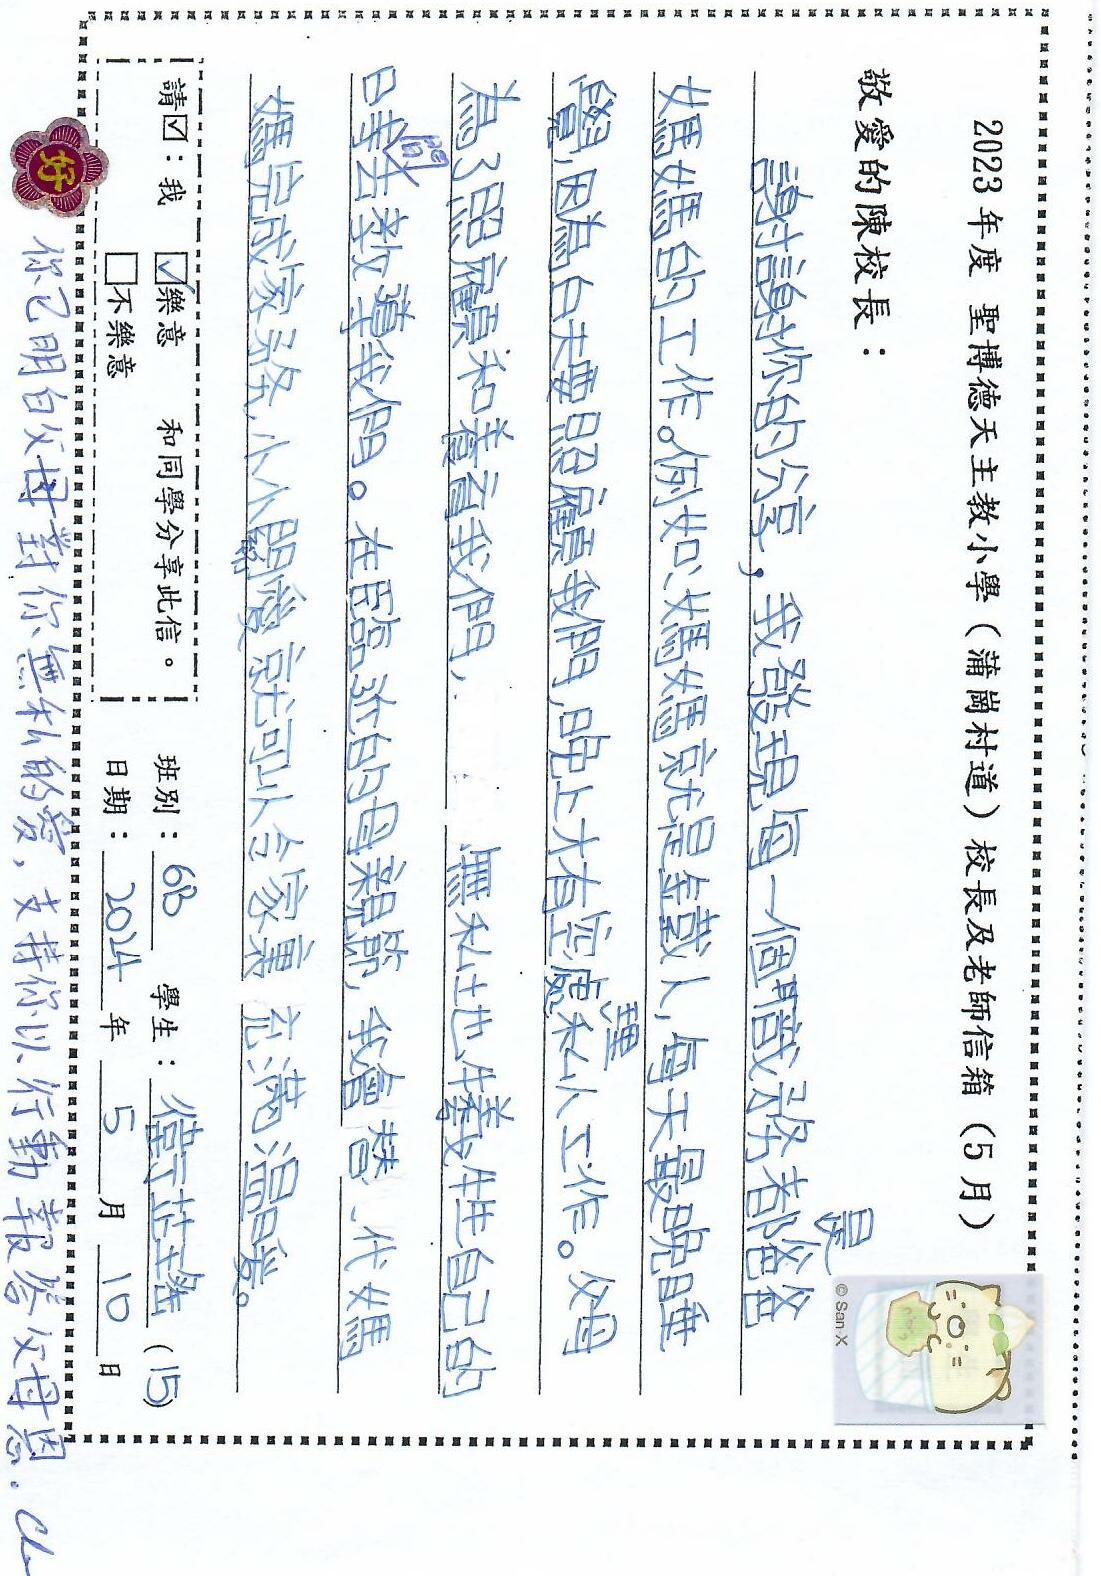 2023年度 聖博德天主教小學（蒲崗村道）校長及老師信箱（5月）
敬愛的陳校長：
謝謝你的分享，我發現每一個職務都是爸爸
媽媽的工作。例如媽媽就是鐘人，每天最晚睡
覺，因為白天要照顧我們，晚上才有空處理私人工作。父母
為了照顧和養育我們， 無私地犧牲自己的
時間去教導我們。在臨近的母親節，我會替代媽
媽完成家務，小小關愛就可以令家裏充滿溫暖。
請☑：我 ☑樂意 和同學分享此信。
□不樂意
班別：6B 學生： (15)
日期：2024年5月10日
好
你已明白父母對你無私的愛，支持你以行動報答父母恩.
© San-X